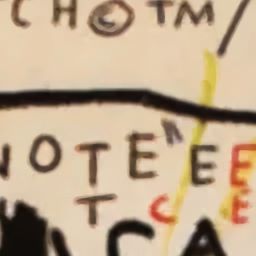 CH©TM/
NOTE" EE
T CE
CA